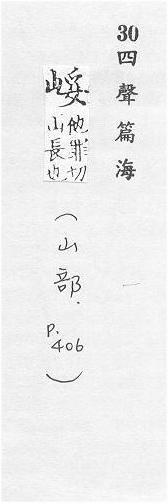 30 四聲篇海
他罪切
山長也
(山部. P.406)